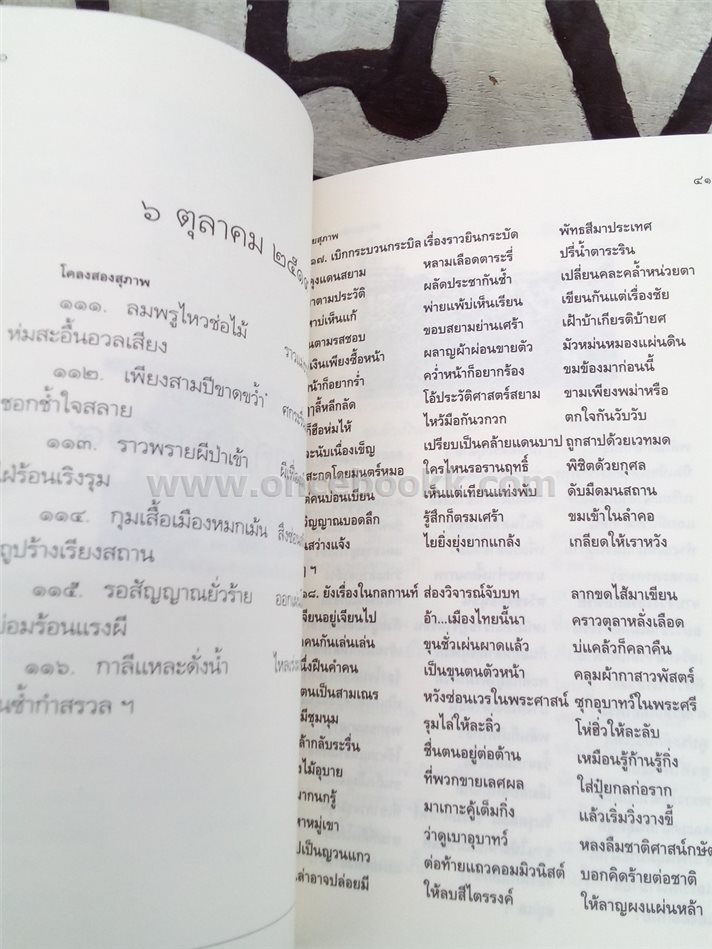 ๖ ตุลาคม ๒๕๑๙
โคลงสองสุภาพ
๑๑๑. ลมพรูไหวช่อไม้
ห่มสะอื้นอวลเสียง
๑๑๒. เพียงสามปีขาดขว้ำ
ชอกช้ำใจสลาย
๑๑๓. ราวพรายผีป่าเข้า
ไฝร้อนเริงรุม
๑๑๔. กุมเสื้อเมืองหมกเม้น
ถูปร้างเรียงสถาน
๑๑๕. รอสัญญาณยั่วร้าย
ย่อมร้อนแรงผี
๑๑๖. กาลีแหละดั่งน้ำ
นซ้ำกำสรวล ฯ
๔๑
ยสุภาพ
๑๗. เบิกกระบวนกระบิล เรื่องราวยินกระบัด พัทธสีมาประเทศ
ลุงแดนสยาม หลามเลือดตาระรี่ ปรี่น้ำตาระริน
าตามประวัติ ผลัดประชากันช้ำ เปลี่ยนคละคล้ำหน่วยตา
หาบ่เห็นแก้ พ่ายแพ้บ่เห็นเรียน เขียนกันแต่เรื่องชัย
นตามรสชอบ ขอบสยามย่านเศร้า เฝ้าบ้าเกียรติบ้ายศ
เงินเพียงซื้อหน้า ผลาญผ้าผ่อนขายตัว มัวหม่นหมองแผ่นดิน
หน้าก็อยากร่ำ คว่ำหน้าก็อยากร้อง ขมข้องมาก่อนนี้
ฤๅลี้หลีกลัด โอ้ประวัติศาสตร์สยาม ขามเพียงพม่าหรือ
ก็ฮือห่มไห้ ไหว้มือกันวกวก ตกใจกันวับวับ
วะนับเนื่องเข็ญ เปรียบเป็นคล้ายแดนบาป ถูกสาปด้วยเวทมด
สะกดโดยมนตร์หมอ ใครไหนรอรานฤทธิ์ พิชิตด้วยกุศล
ต่คนบ่อนเบียน เห็นแต่เทียนแท่งพับ ดับมืดมนสถาน
วิญญาณบอดลึก รู้สึกก็ตรมเศร้า ขมเข้าในลำคอ
สว่างแจ้ง ไยยิ่งยุ่งยากแกล้ง เกลียดให้เราหวัง
ๆ ฯ
๑๘. ยังเรื่องในกลกานท์ ส่องวิจารณ์จับบท ลากขดไส้มาเขียน
จียนอยู่เจียนไป อ้า...เมืองไทยนี้นา คราวตุลาหลั่งเลือด
คนกันเล่นเล่น ขุนชั่วเผ่นผาดแล้ว บ่แคล้วก็คลาคืน
นึ่งฝืนคำคน เป็นขุนตนตัวหน้า คลุมผ้ากาสาวพัสตร์
ตนเป็นสามเณร หวังซ่อนเวรในพระศาสน์ ซุกอุบาทว์ในพระศรี
มีชุมนุม รุมไล่ให้ละลิ่ว โห่ฮิ่วให้ละลับ
ล้ากลับระรื่น ชื่นตนอยู่ต่อต้าน เหมือนรู้ก้านรู้กิ่ง
งไม้อุบาย ที่พวกขายเลศผล ใส่ปุ๋ยกลก่อราก
มากนกรู้ มาเกาะคู้เต็มกิ่ง แล้วเริ่มวิ่งวางขี้
หาหมู่เขา ว่าดูเบาอุบาทว์ หลงลืมชาติศาสน์กษัต
ปเป็นญวนแกว ต่อท้ายแถวคอมมิวนิสต์ บอกคิดร้ายต่อชาติ
ล่าอาจปล่อยมี ให้ลบสีไตรรงค์ ให้ลาญผงแผ่นหล้า
www.oncebookk.com